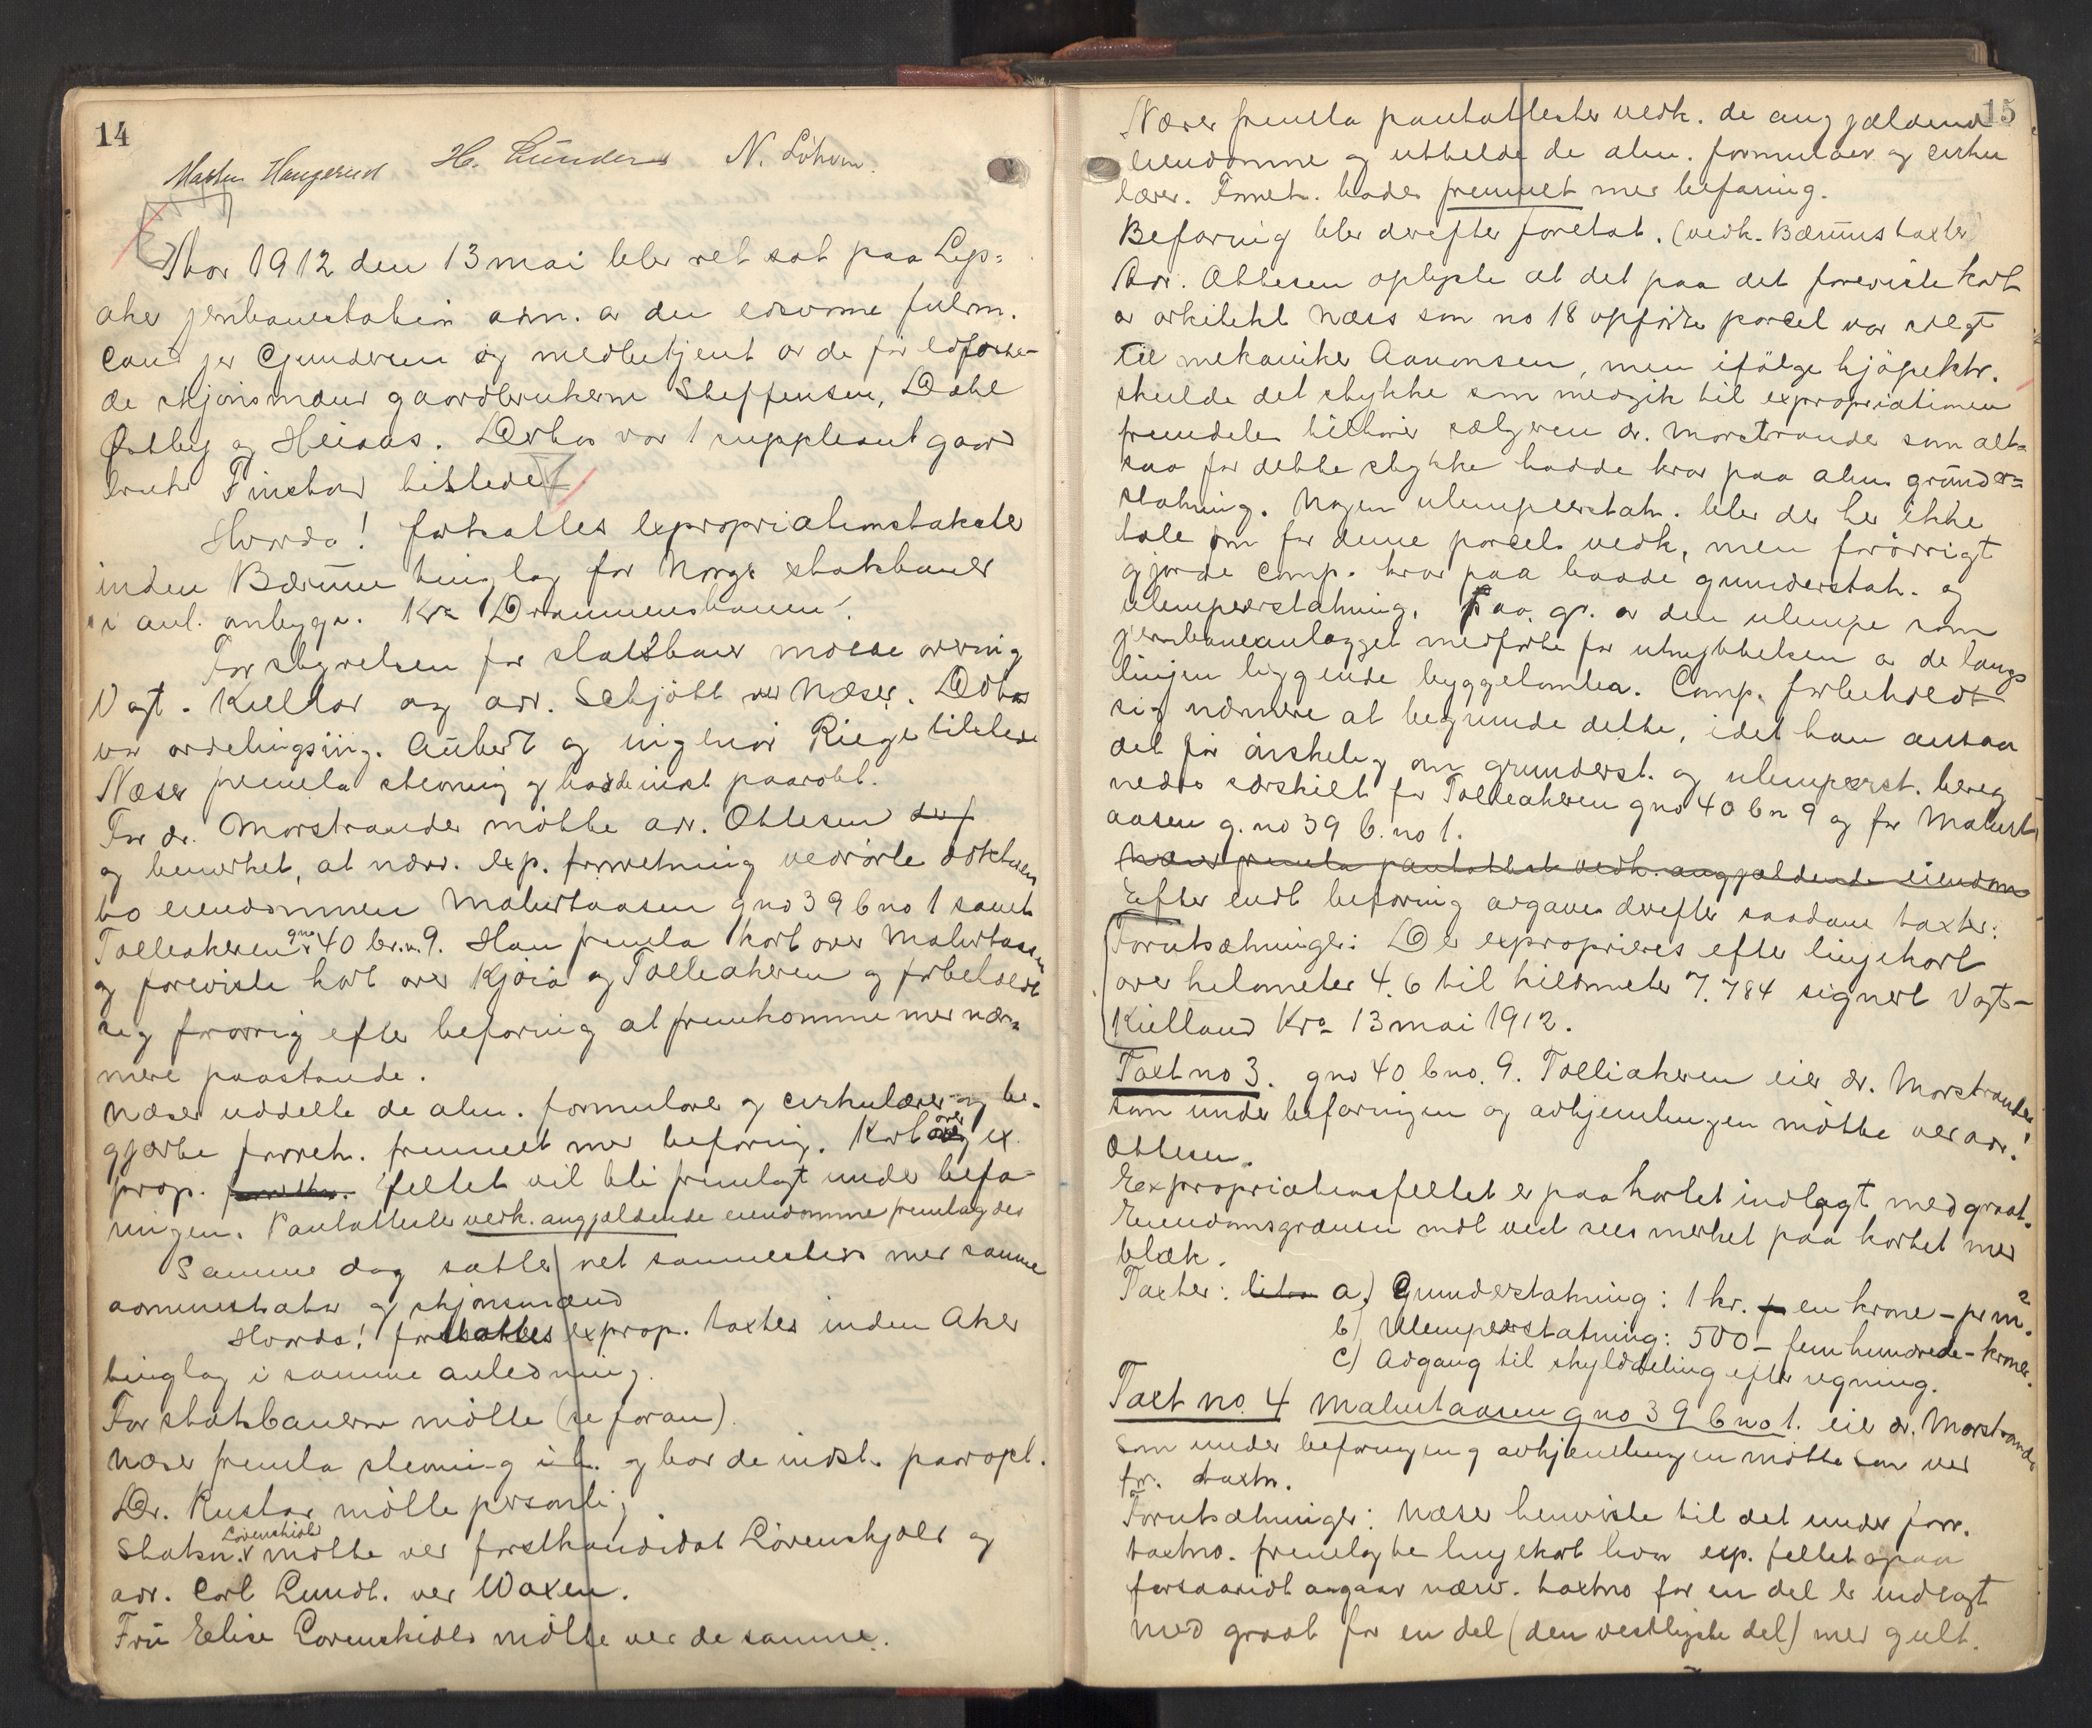 14
Martin Haugerud H. Lunder N.
Aar 1912 den 13 mai blev ret sat paa Lys-
aker jernbanestation adm. av den edsvorne fuldm.
cand jur Gundersen og medbetjent av de før edfæste-
de skjønsmænd gaardbrukerne Steffensen, Dahl
Østby og Heiaas. Desuten var 1 suppleant gaard
bruker Finstad tilstede
Hvorda! fortsattes expropriationstakster
inden Bærum tinglag for Norges statsbaner
i anl. ombygn. Kra Drammensbanen.
For styrelsen for statsbaner møtte avd.ing
Vogt. Kielland og adv. Schjødt ved Næser. Desuten
var avdelingsing. Aubert og ingeniør Riege tilstede
Næser fremla stevning og hadde intet paaraabt.
For dr. Morstrander møtte adv. Ottesen
og bemerket, at nærv. exp. forretning vedrørte doktorens
to eiendommen Malurtaasen gno 39 bno 1 samt
Tolleakeren gno 40 br.n. 9. Han fremla kort over Malurtaasen
og foreviste kort over Kjøia og Tolleakeren og forbeholdt
sig forøvrig efter befaring at fremkomme med nær-
mere paastande.
Næser uddelte de alm. formularer og cirkulærer og be-
gjærte forretn. fremmet med befaring. Kort over ex
prop. forretn. feltet vil bli fremlagt under befa-
ringen. Pantattester vedk. angjældende eiendomme fremlagdes
Samme dag sattes ret sammesteds med samme
administrator og skjønsmænd
Hvorda! fortsattes exprop. taxter inden Aker
tinglag i samme anledning.
For statsbanerne møtte (se foran).
Næser fremla stevning og hadde indst. paaropt.
Dr. Rustad møtte personlig
Statsm. Løvenskiold møtte ved forstkandidat Løvenskjold og
adv. Carl Lundt. ved Waxen.
Fru Elise Løvenskiold møtte ved de samme.
15
Næser fremla pantattester vedk. de angjældende
eiendomme og utdelte de alm. formularer og cirku
lærer. Forretn. bades fremmet med befaring.
Befaring blev derefter foretat. (vedk. Bærumstaxter)
Adv. Ottesen oplyste at det paa det foreviste kort
av arkitekt Næss som no 18 opførte parcel var solgt
til mekaniker Aaronsen, men ifølge kjøpektr.
skulde det stykke som medgik til expropriationen
fremdeles tilhøre sælgeren dr. Morstrander som alt-
saa for dette stykke hadde krav paa alm. grunder-
statning. Nogen ulempeerstatn. blev der her ikke
tale om for denne parcels vedk, men forøvrigt
gjorde Comp. krav paa baade grunderstatn. og
ulempeerstatning. Paa gr. av den ulempe som
jernbaneanlægget medførte for utnyttelsen av de langs
linjen liggende byggetomter. Comp. forbeholdt
sig nærmere at begrunde dette, idet han ansaa
det for ønskelig om grunderst. og ulempeerst. bereg
nedes særskilt for Tolleakeren gno 40 bn 9 og for Malurt
aasen g.no 39 b.no 1.
Næser fremla pantattest vedk. angjældende eiendom
Efter endt befaring avgaves derefter saadane taxter:
Forutsætninger: Der exproprieres efter linjekart
over kelometer 4.6 til kilometer 7.784 signert Vogt-
Kielland Kra 13 mai 1912.
Taxt no 3. gno 40 bno. 9. Tolliakeren eier dr. Morstrander
som under befaringen og avhjemlingen møtte ved adv.
Ottesen.
Expropriationsfeltet er paa kortet indlagt med graat.
Eiendomsgrænsen mot vest sees merket paa kortet med
blæk.
Taxter: litra a.) Grunderstatning: 1 kr. en krone - pr m2.
b) Ulempeerstatning: 500 - fem hundrede - kroner.
c) Adgang til skylddeling efter regning.
Taxt no. 4 Malurtaasen gno 39 bno 1. eier dr. Morstrander
som under befaringen og avhjemlingen møtte som ved
fr. taxtn.
Forutsætninger: Næser henviste til det under forr.
taxtno. fremlagte linjekort hvor exp. feltet
forsaavidt angaar nærv. taxtno for en del er indlagt
med graat for en del (den vestligste del) med gult.